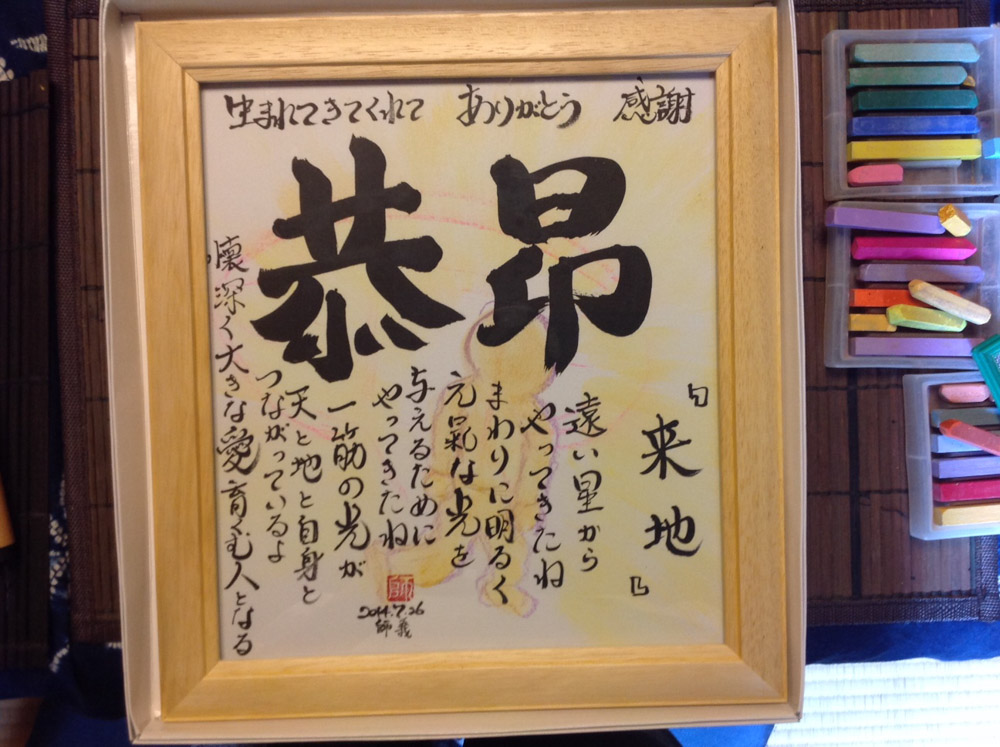 生まれてきてくれて　ありがとう　感謝
昂
恭
『来地』
遠い星から
やってきたね
まわりに明るく
元氣な光を
与えるために
やってきたね
一筋の光が
天と地と自身と
つながっているよ
懐深く大きな愛育む人となる
師
2014.7.26
師義